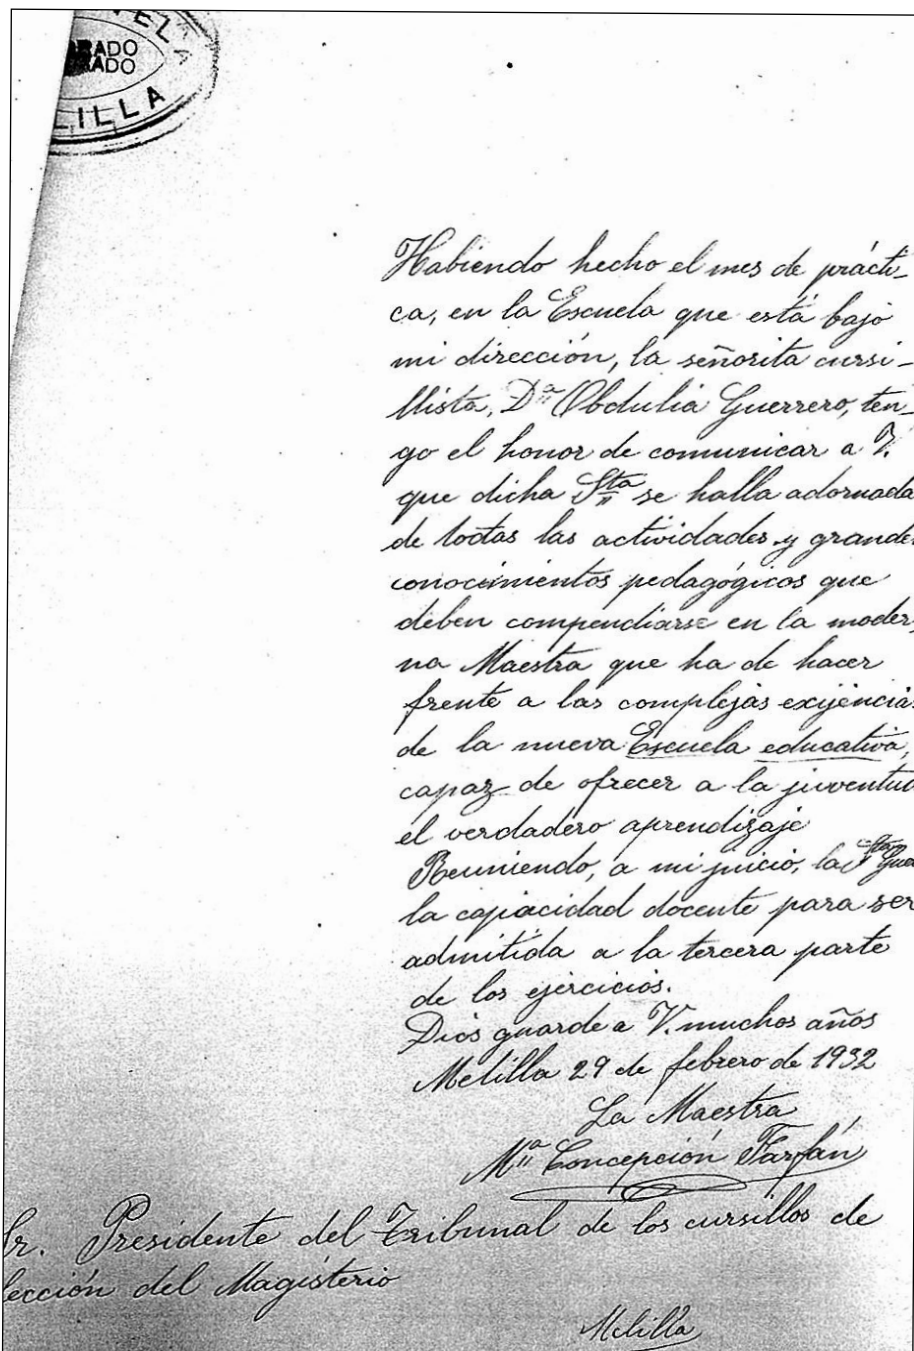 ELA
RADO
RADO
LILLA
Habiendo hecho el mes de prácti-
ca, en la Escuela que está bajo
mi dirección, la señorita cursi-
llista, Dª Obdulia Guerrero, ten-
go el honor de comunicar a V.
que dicha Sta se halla adornada
de todas las actividades y grandes
conocimientos pedagógicos que
deben compendiarse en la moder-
na Maestra que ha de hacer
frente a las complejas exijencias
de la nueva Escuela educativa,
capaz de ofrecer a la juventud
el verdadero aprendizaje
Reuniendo, a mi juicio, la Sta Gue
la capacidad docente para ser
admitida a la tercera parte
de los ejercicios.
Dios guarde a V. muchos años
Melilla 29 de febrero de 1932
La Maestra
Mª Concepción Farfán
Sr. Presidente del Tribunal de los cursillos de
lección del Magisterio
Melilla